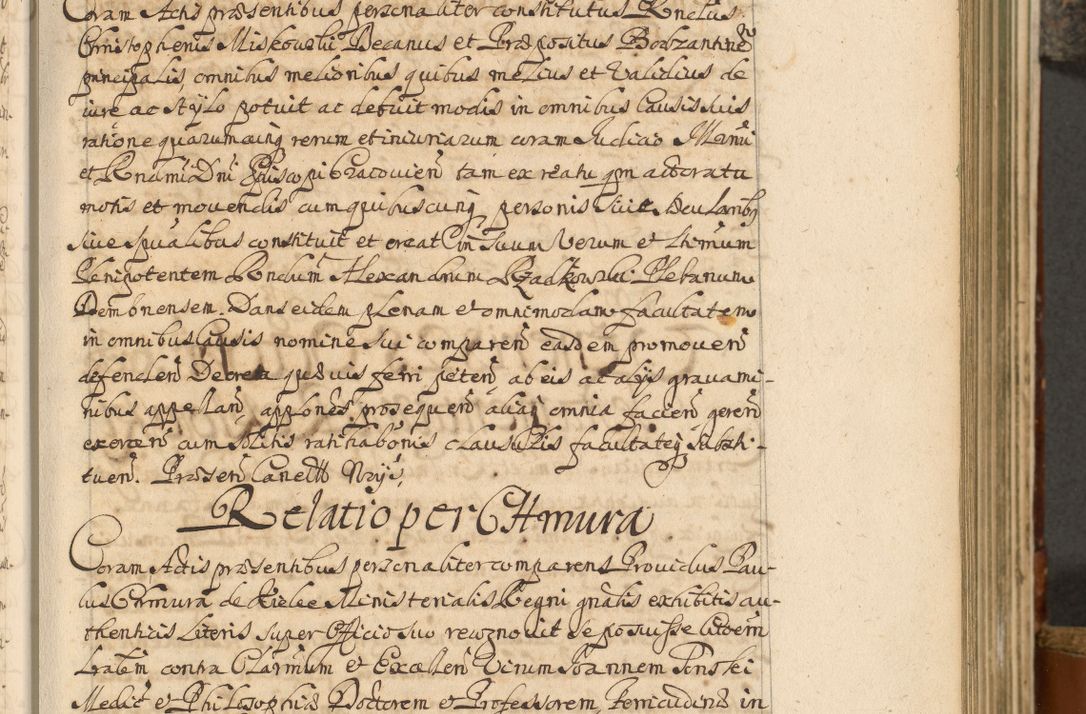 Coram Actis præsentibus personaliter constitutus Rndus
Christophorus Miskovski Decanus et Præpositus Bodzantinen
principalis, omnibus melioribus quibus melius et validius de
iure ac stylo potuit ac debuit modis in omnibus Causis suis
ratione quarumcunq rerum et iniuriarum coram Judicio Illrimi
et Rndmi Dni Episcopi Cracovien tam ex reatu qm actoratu
motis et movendis cum quibuscunq personis sive secularibq
sive spualibus constituit et creat in suum verum et lttimum
Plenipotentem Rndum Alexandrum Rządkowski Plebanum
Dembnensem. Dans eidem plenam et omnimodam facultatem
in omnibus Causis nomine sui comparen easdem promoven
defenden Decreta quævis ferri peten ab eis ac alijs gravami-
nibus appellan applones prosequen aliaq omnia facien geren
exercen cum solitis ratihabonis clausulis facultateq substi-
tuen. Præsen Canell Nrij
Relatio per Chmura
Coram Actis præsentibus personaliter comparens Providus Pau-
lus Chmura de Kielce Ministerialis Regni gnalis exhibitis au-
thenticis Literis super Officio suo recognovit se posuisse Citoem
lratem contra Clarmum et Excellen Virum Joannem Tonski
Medic et Philosophiæ Doctorem et Professorem, in